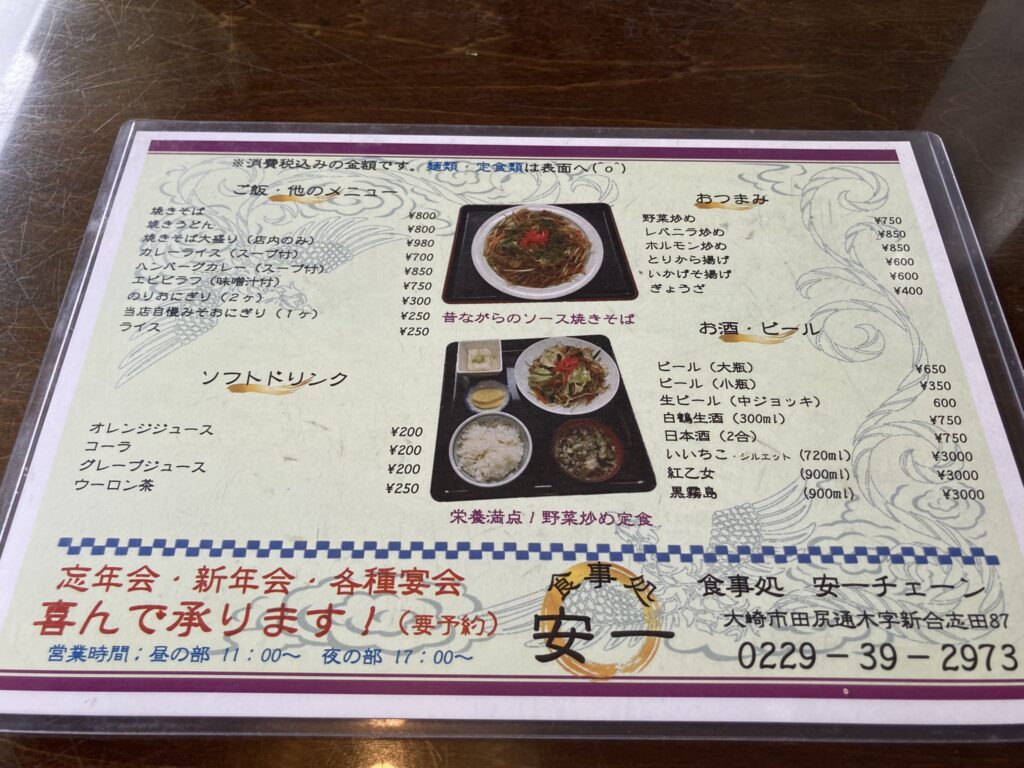 ※消費税込みの金額です。麺類・定食類は表面へ(^o^)
ご飯・他のメニュー
焼きそば ¥800
焼きうどん ¥800
焼きそば大盛り（店内のみ） ¥980
カレーライス（スープ付） ¥700
ハンバーグカレー（スープ付） ¥850
エビピラフ（味噌汁付） ¥750
のりおにぎり（２ヶ） ¥300
当店自慢みそおにぎり（１ヶ） ¥250
ライス ¥250
ソフトドリンク
オレンジジュース ¥200
コーラ ¥200
グレープジュース ¥200
ウーロン茶 ¥250
昔ながらのソース焼きそば
栄養満点！野菜炒め定食
おつまみ
野菜炒め ¥750
レバニラ炒め ¥850
ホルモン炒め ¥850
とりから揚げ ¥600
いかげそ揚げ ¥600
ぎょうざ ¥400
お酒・ビール
ビール（大瓶） ¥650
ビール（小瓶） ¥350
生ビール（中ジョッキ） 600
白鶴生酒（300ml） ¥750
日本酒（2合） ¥750
いいちこ・シルエット（720ml） ¥3000
紅乙女（900ml） ¥3000
黒霧島（900ml） ¥3000
忘年会・新年会・各種宴会
喜んで承ります！（要予約）
営業時間：昼の部 11：00～ 夜の部 17：00～
食事処
安一
食事処 安一チェーン
大崎市田尻通木字新合志田87
0229－39－2973